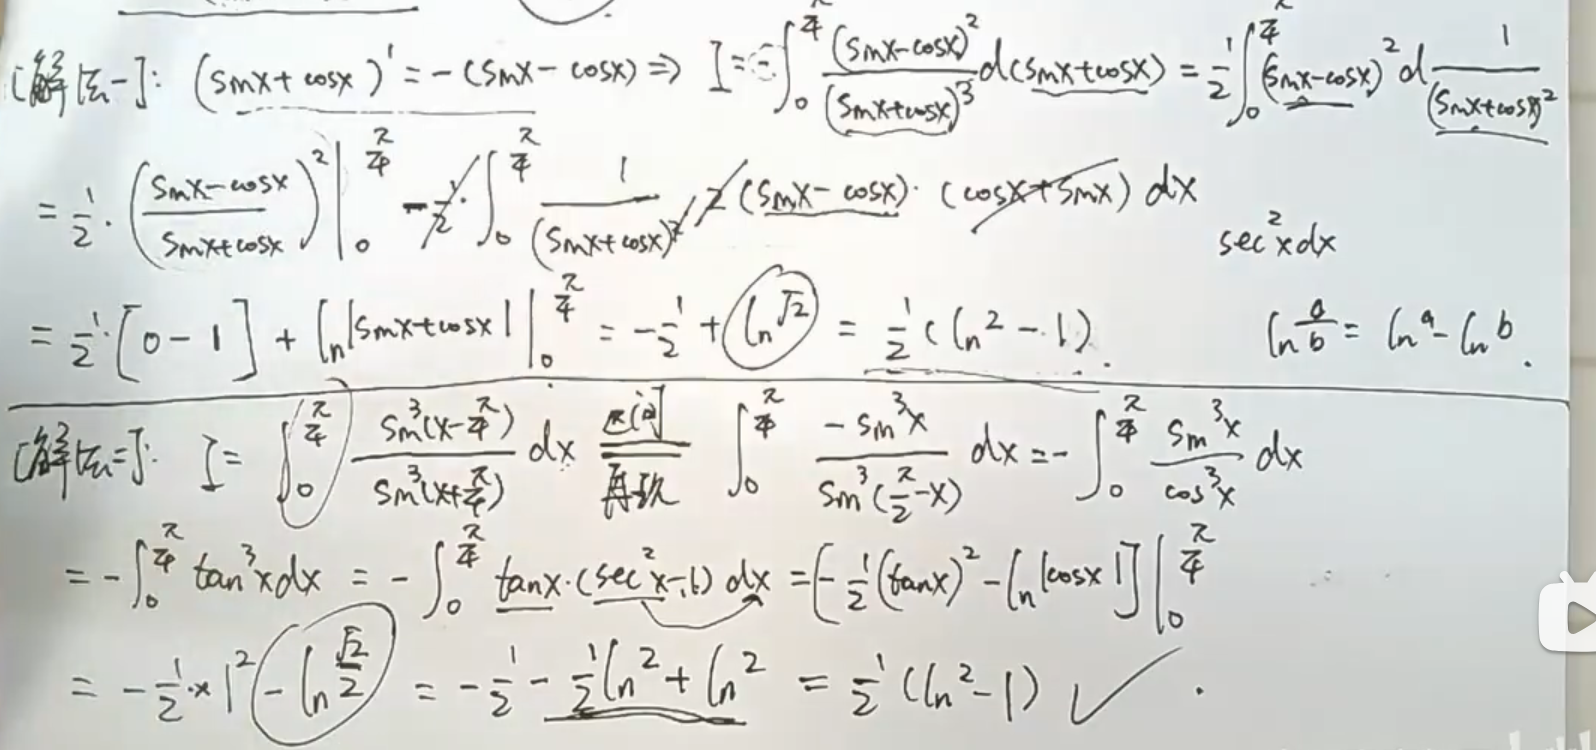 [解法一]: (sinx+cosx)' = -(sinx-cosx) ⇒ I = -∫₀^{π/4} (sinx-cosx)²/(sinx+cosx)³ d(sinx+cosx) = 1/2 ∫₀^{π/4} (sinx-cosx)² d 1/(sinx+cosx)²
= 1/2 · ((sinx-cosx)/(sinx+cosx))² |₀^{π/4} - 1/2 · ∫₀^{π/4} 1/(sinx+cosx)² 2(sinx-cosx)·(cosx+sinx) dx
sec²xdx
= 1/2 · [0-1] + ln|sinx+cosx| |₀^{π/4} = -1/2 + ln√2 = 1/2 (ln2-1).
ln a/b = lna - lnb.
[解法二]: I = ∫₀^{π/4} sin³(x-π/4)/sin³(x+π/4) dx 区间再现 ∫₀^{π/4} -sin³x/sin³(π/2-x) dx = -∫₀^{π/4} sin³x/cos³x dx
= -∫₀^{π/4} tan³xdx = -∫₀^{π/4} tanx·(sec²x-1) dx = [-1/2 (tanx)² - ln|cosx|] |₀^{π/4}
= -1/2 · × 1² - ln √2/2 = -1/2 - 1/2 ln2 + ln2 = 1/2 (ln2-1) ✓.